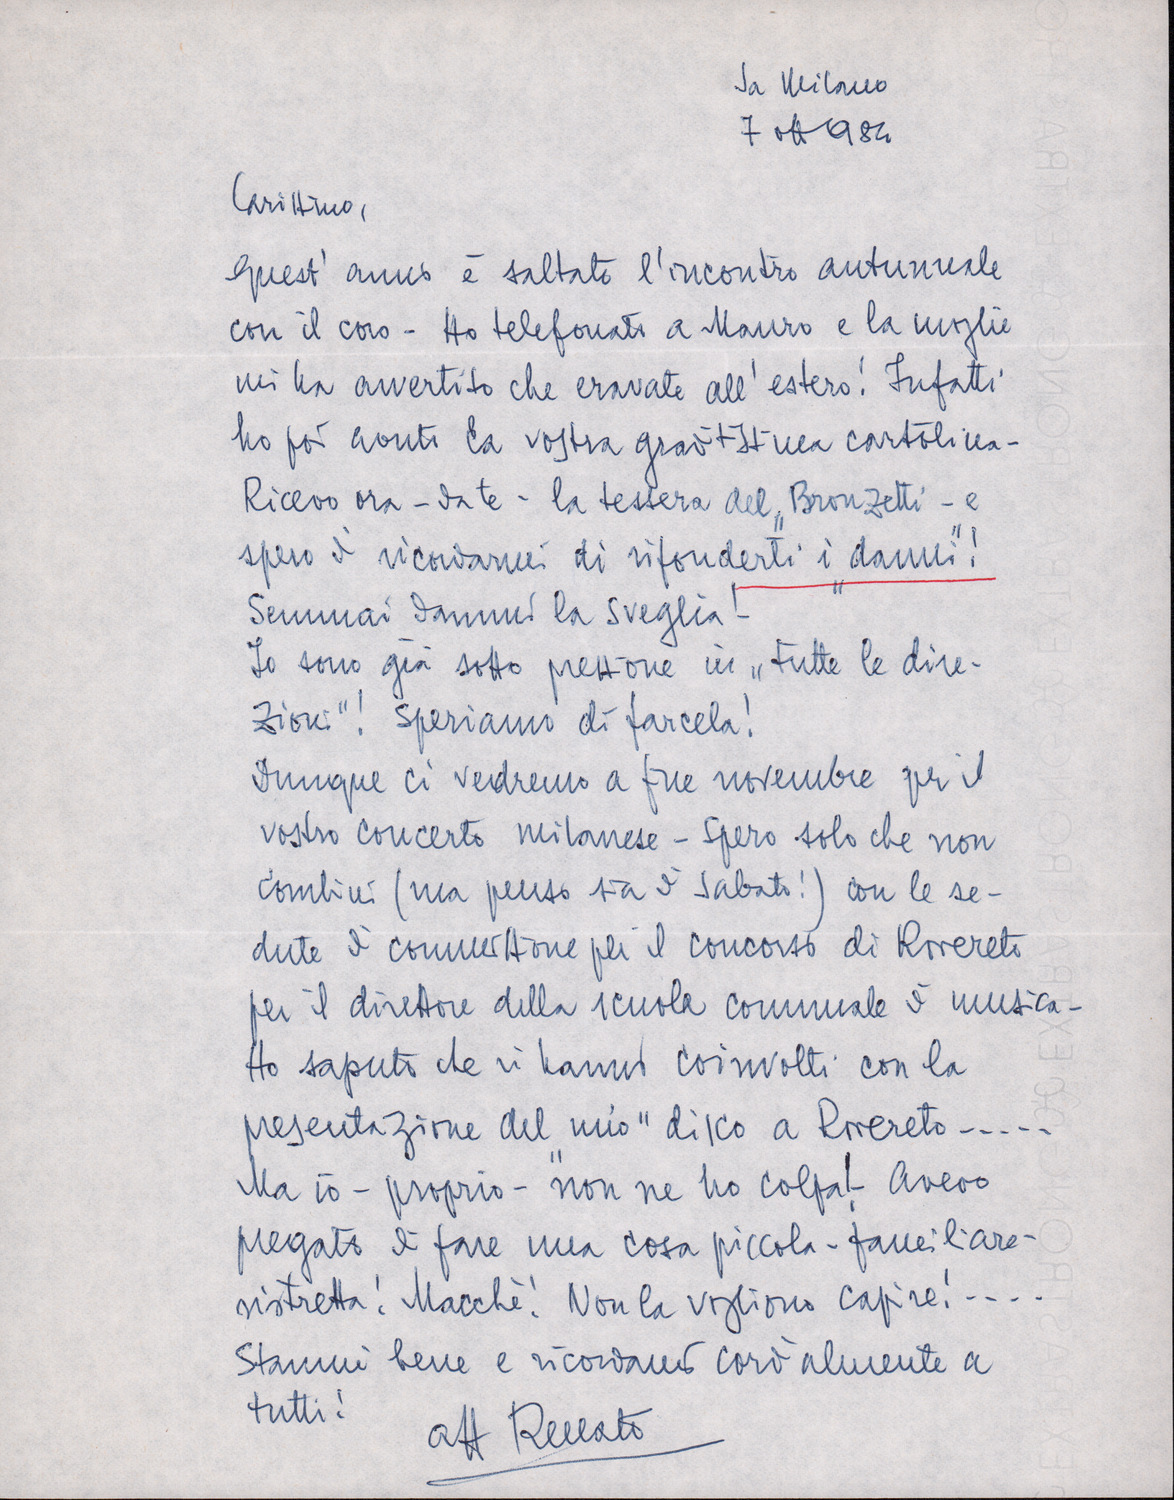 Da Milano
7 ott 1984
Carissimo,
Quest'anno è saltato l'incontro autunnale
con il coro - Ho telefonato a Mauro e la moglie
mi ha avvertito che eravate all'estero! Infatti
ho poi avuto la vostra graditissima cartolina -
Ricevo ora - da te - la tessera del „Bronzetti - e
spero di ricordarmi di rifonderti i „danni"!
Semmai dammi la sveglia! -
Io sono già sotto pressione in „tutte le dire-
zioni"! Speriamo di farcela!
Dunque ci vedremo a fine novembre per il
vostro concerto milanese - Spero solo che non
combini (ma penso sia di sabato!) con le se-
dute di commissione per il concorso di Rovereto
per il direttore della scuola comunale di musica -
Ho saputo che vi hanno coinvolti con la
presentazione del „mio" disco a Rovereto -----
Ma io - proprio - non ne ho colpa! - Avevo
pregato di fare una cosa piccola - familiare -
ristretta! Macchè! Non la vogliono capire! ----
Stammi bene e ricordami cordialmente a
tutti!
aff Renato